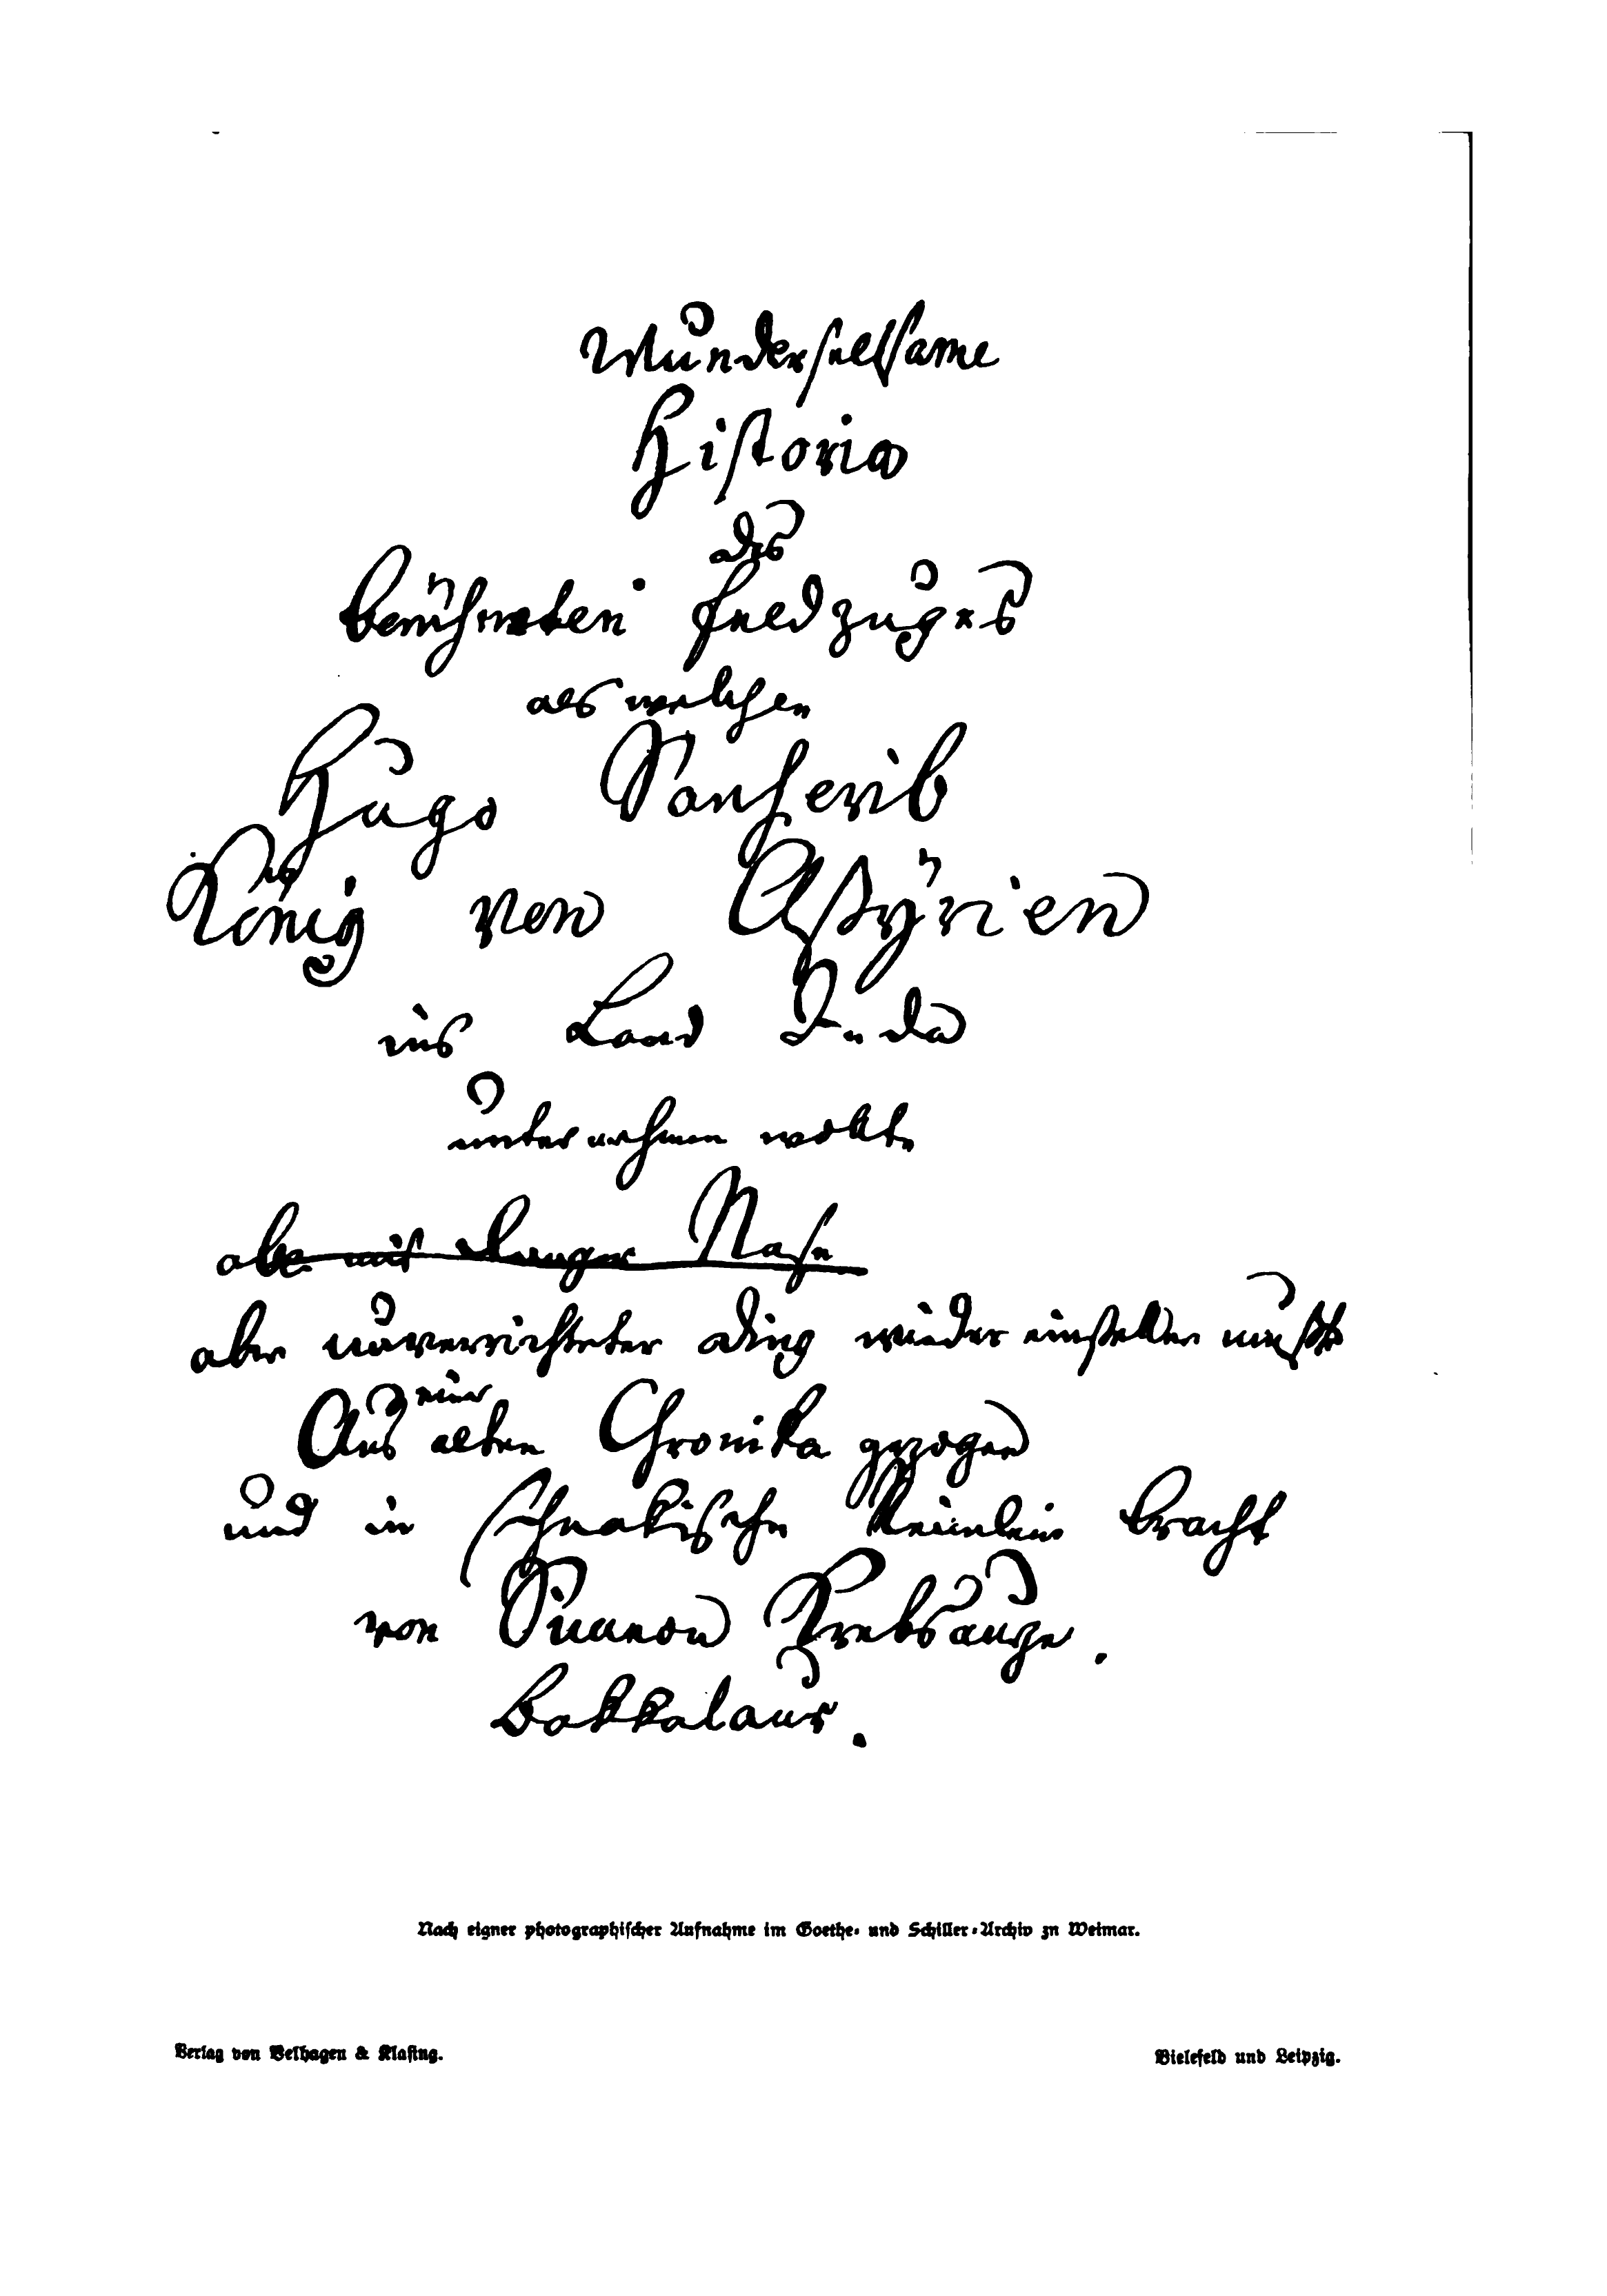 Wunderseltsame
Historia
des
berühmten Feldzuges
als welchen
Hugo Sanherib
König von Aßyrien
ins Land Juda
unternehmen wollte
aber mit langer Nase
aber unverrichteter Ding wieder einstellen mußte
einer
Aus alten Chronika gezogen
und in schnakische Reimlein bracht
von Simeon Krebsauge.
Bakkalaur.
Nach eigner photographischer Aufnahme im Goethe- und Schiller-Archiv zu Weimar.
Verlag von Velhagen & Klasing.
Bielefeld und Leipzig.